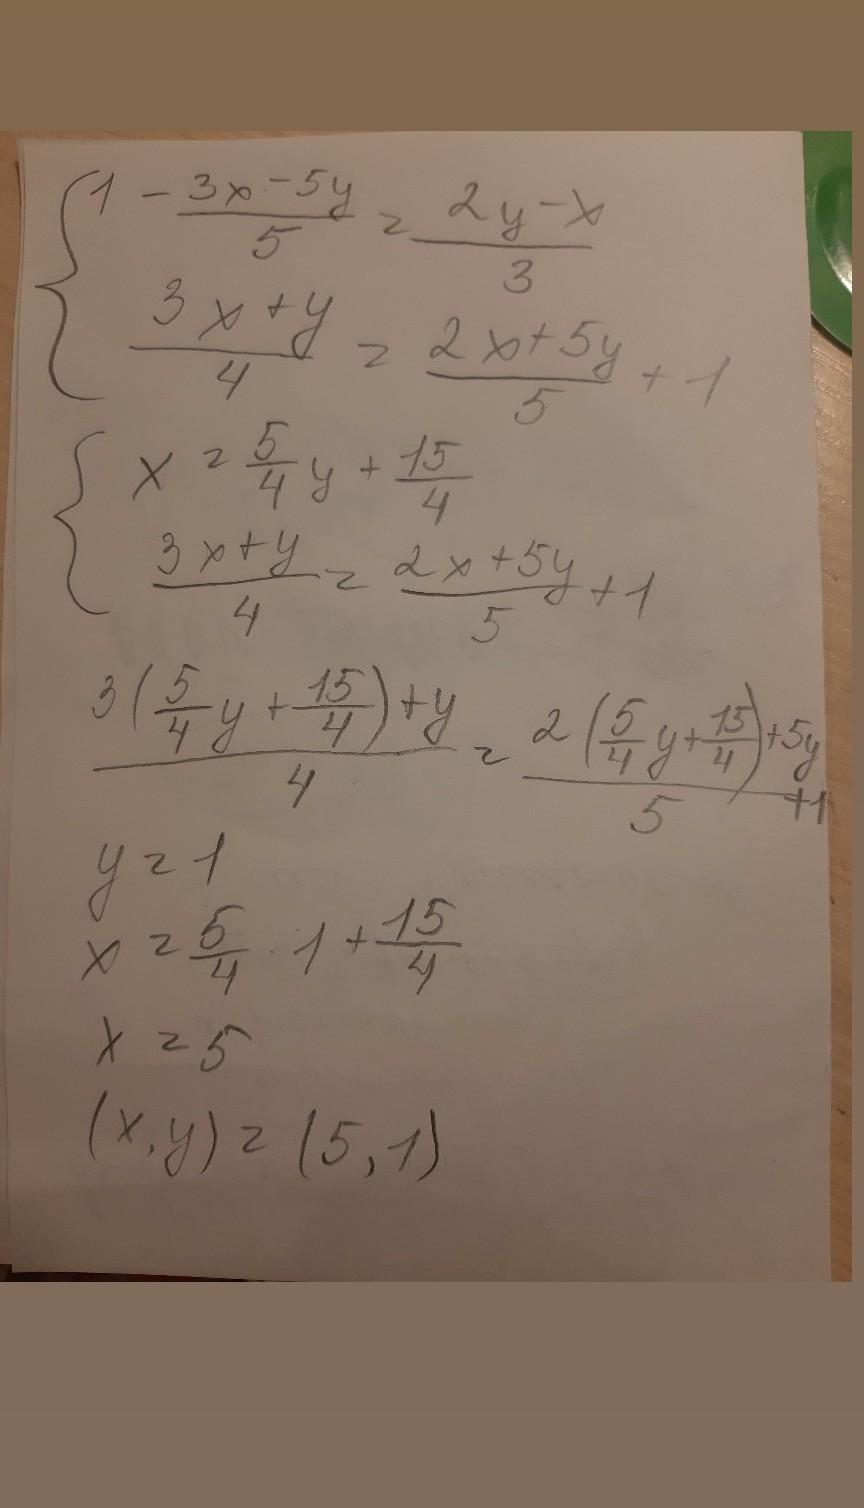 { 1 - (3x - 5y)/5 = (2y - x)/3
(3x + y)/4 = (2x + 5y)/5 + 1
{ x = 5/4 y + 15/4
(3x + y)/4 = (2x + 5y)/5 + 1
(3(5/4 y + 15/4) + y)/4 = (2(5/4 y + 15/4) + 5y)/5 + 1
y = 1
x = 5/4 · 1 + 15/4
x = 5
(x, y) = (5, 1)